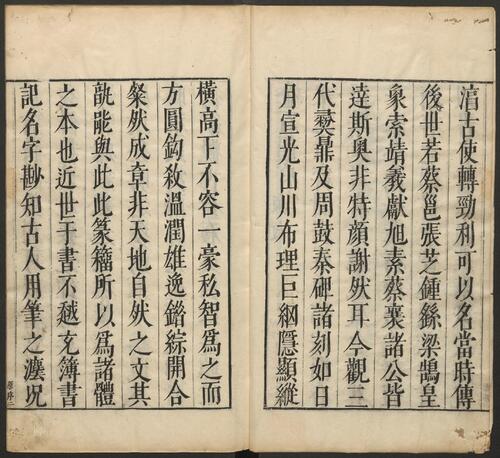 淯古使轉勁利可以名當時傳
後世若蔡邕張芝鍾繇梁鵠皇
象索靖羲獻旭素蔡襄諸公皆
達斯奥非特顔謝然耳今觀三
代彝鼎及周鼓秦碑諸刻如日
月宣光山川布理巨綱隱顯縱
橫高下不容一豪私智爲之而
方圓鈎殺溫潤雄逸錯綜開合
粲然成章非天地自然之文其
孰能與此此篆籀所以爲諸體
之本也近世于書不越充簿書
記名字尠知古人用筆之灋况